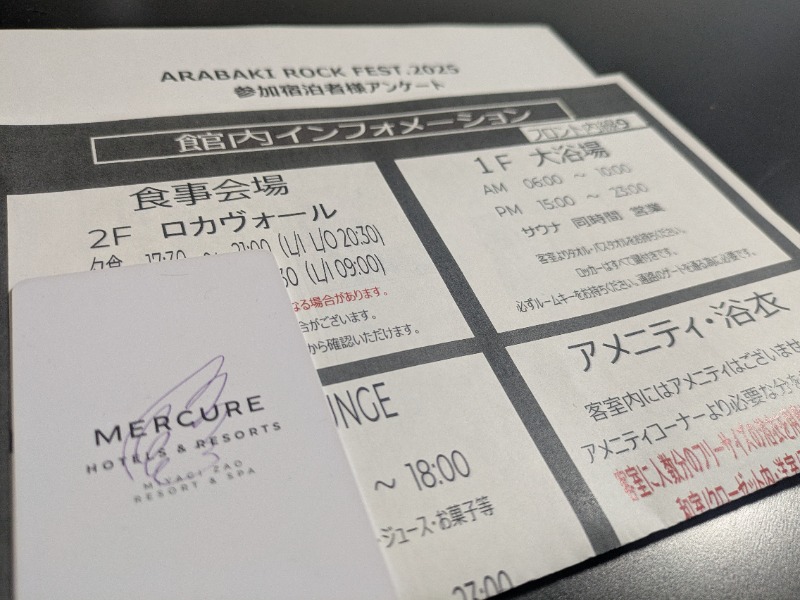 ARABAKI ROCK FEST.2025
参加宿泊者様アンケート
館内インフォメーション
フロント内線9
食事会場
2F ロカヴォール
夕食 17:30 ~ 21:00 (L/I L/O 20:30)
30 (L/I 09:00)
なる場合があります。
合がございます。
から確認いただけます。
1F 大浴場
AM 06:00 ~ 10:00
PM 15:00 ~ 23:00
サウナ 同時間 営業
客室よりタオル・バスタオルをお持ちください。
ロッカーはすべて鍵付きです。
必ずルームキーをお持ちください。通路のゲートを通る為に必要です。
UNGE
~ 18:00
ジュース・お菓子等
23:00
アメニティ・浴衣
客室内にはアメニティはございませ
アメニティコーナーより必要な分を
客室に人数分のフリーサイズの浴衣を
和室/クローゼット内・洋室
MERCURE
HOTELS & RESORTS
MIYAGI ZAO
RESORT & SPA